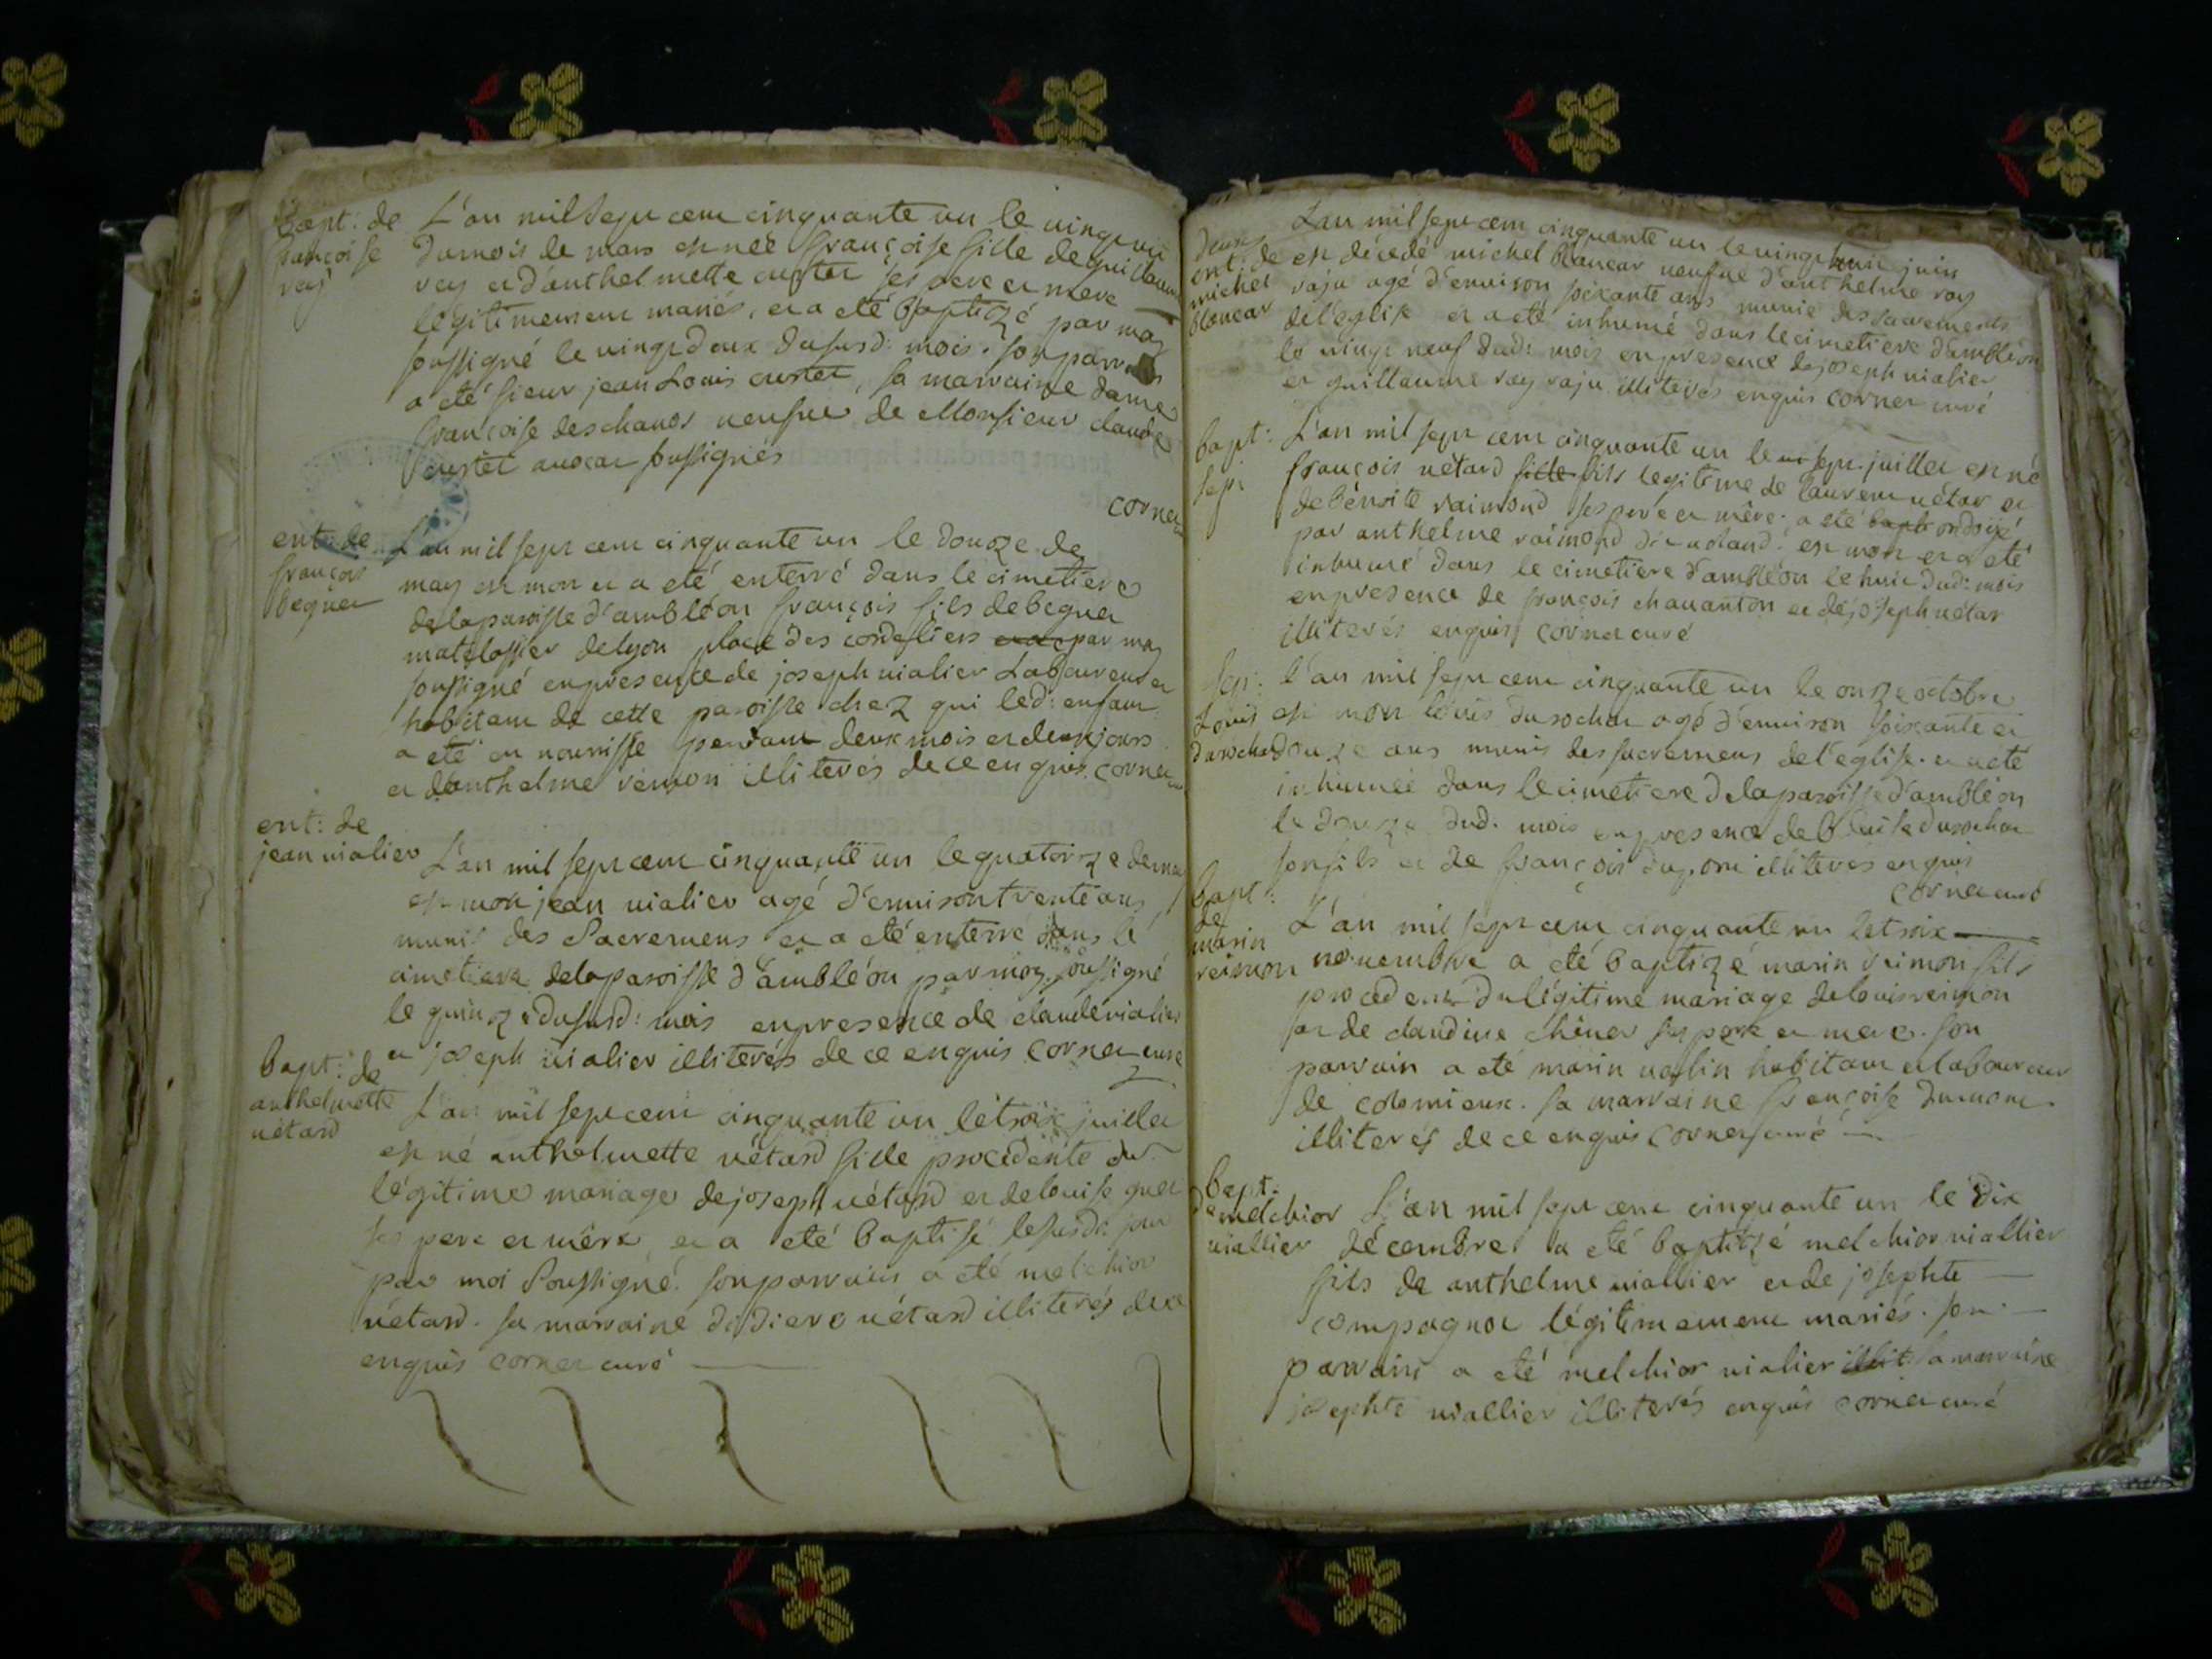 bapt: de
françoise
rey
L'an mil sept cent cinquante un le vingt un
du mois de mars est née françoise fille de guillaume
rey et d'anthelmette custet ses pere et mere
légitimement mariés, et a eté baptizé par moy
soussigné le vingt deux dususd: mois. son parrain
a été sieur jean Louis custet, sa marraine dame
françoise deschamps veufue de Monsieur claude
custet auocat soussignés
cornet
ent: de
françois
beguet
L'an mil sept cent cinquante un le douze de
may est mort et a eté enterré dans le cimetiere
de la paroisse d'ambléon françois fils de beguet
matelassier de lyon place des cordeliers par moy
soussigné en presence de joseph vialier Laboureur et
habitant de cette paroisse chez qui led: enfant
a eté en nourrisse pendant deux mois et deux jours
et d'anthelme vémon illiterés de ce enquis. cornet
ent: de
jean vialier
L'an mil sept cent cinquante un le quatorze de may
est mort jean vialier agé d'enuiron trente ans
munis des Sacremens et a eté enterré dans le
cimetiere de la paroisse d'ambléon par moy soussigné
le quinze dususd: mois en presence de claude vialier
et joseph vialier illiterés de ce enquis cornet curé
bapt: de
anthelmette
vétard
L'an mil sept cent cinquante un le trois juillet
est né anthelmette vétard fille procédente du
légitime mariage de joseph vétard et de louise guet
ses pere et mére et a eté baptisé le susd: jour
par moi Soussigné. son parrain a eté melchior
vétard. sa marraine didiere vétard illiterés de ce
enquis cornet curé
deux
ent: de
michel
blancar
L'an mil sept cent cinquante un le vingt huit juin
est décedé michel blancar veufue d'anthelme rey
raju agé d'enuiron soixante ans munie des sacrements
de l'eglise et a eté inhumé dans le cimetiere d'ambléon
le vingt neuf dud: mois en presence de joseph vialier
et guillaume rey raju illiterés enquis cornet curé
bapt:
sept
L'an mil sept cent cinquante un le sept juillet est né
françois vétard fille fils legitime de laurent vétar et
de bénoite raimond ses pere et mére. a eté bapt ondoyé
par anthelme raimond est mort et a eté
inhumé dans le cimetiere d'ambléon le huit dud: mois
en presence de françois chauanton et de joseph vétar
illiterés enquis cornet curé
sep:
Louis
durochat
L'an mil sept cent cinquante un le onze octobre
est mort louis durochat agé d'enuiron soixante et
douze ans munis des sacremens de l'eglise. et a eté
inhumée dans le cimetiere de la paroisse d'ambléon
le douze dud. mois en presence de blaise durochat
son fils et de françois dupont illiteres enquis
cornet curé
bapt:
de
marin
reimon
L'an mil sept cent cinquante un le trois
novembre a eté baptizé marin reimon fils
procedent du légitime mariage de louis reimon
et de claudine chêner ses pere et mere. son
parrain a eté marin habitant et laboureur
de colomieux. sa marraine françoise dumont
illiterés de ce enquis cornet curé
bapt:
de melchior
viallier
L'an mil sept cent cinquante un le dix
décembre a eté baptizé melchior viallier
fils de anthelme viallier et de josephte
compagnon légitimement mariés. son
parrain a eté melchior vialier illit sa marraine
josephte viallier illiterés enquis cornet curé